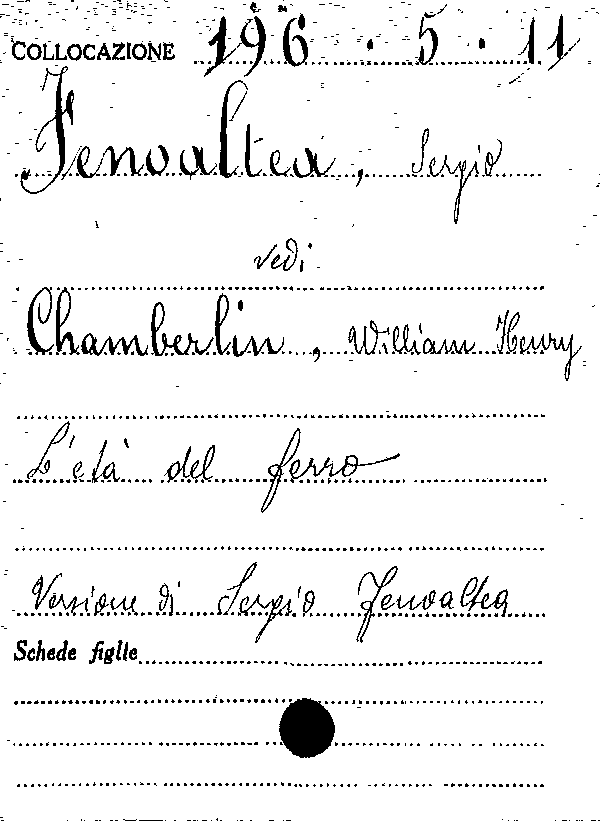 COLLOCAZIONE 196 . 5 . 11
Fenoaltea, Sergio
vedi
Chamberlin, William Henry
L'età del ferro
Versione di Sergio Fenoaltea
Schede figlie